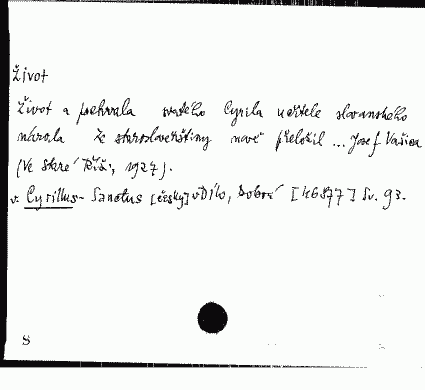 Život
Život a pochvala svatého Cyrila učitele slovanského
národa Ze staroslověnštiny nově přeložil ... Josef Vašica
(Ve Staré Říši, 1927).
v. Cyrillus - Sanctus [česky] v Dílo, Dobré [46877] Sv. 93.
S